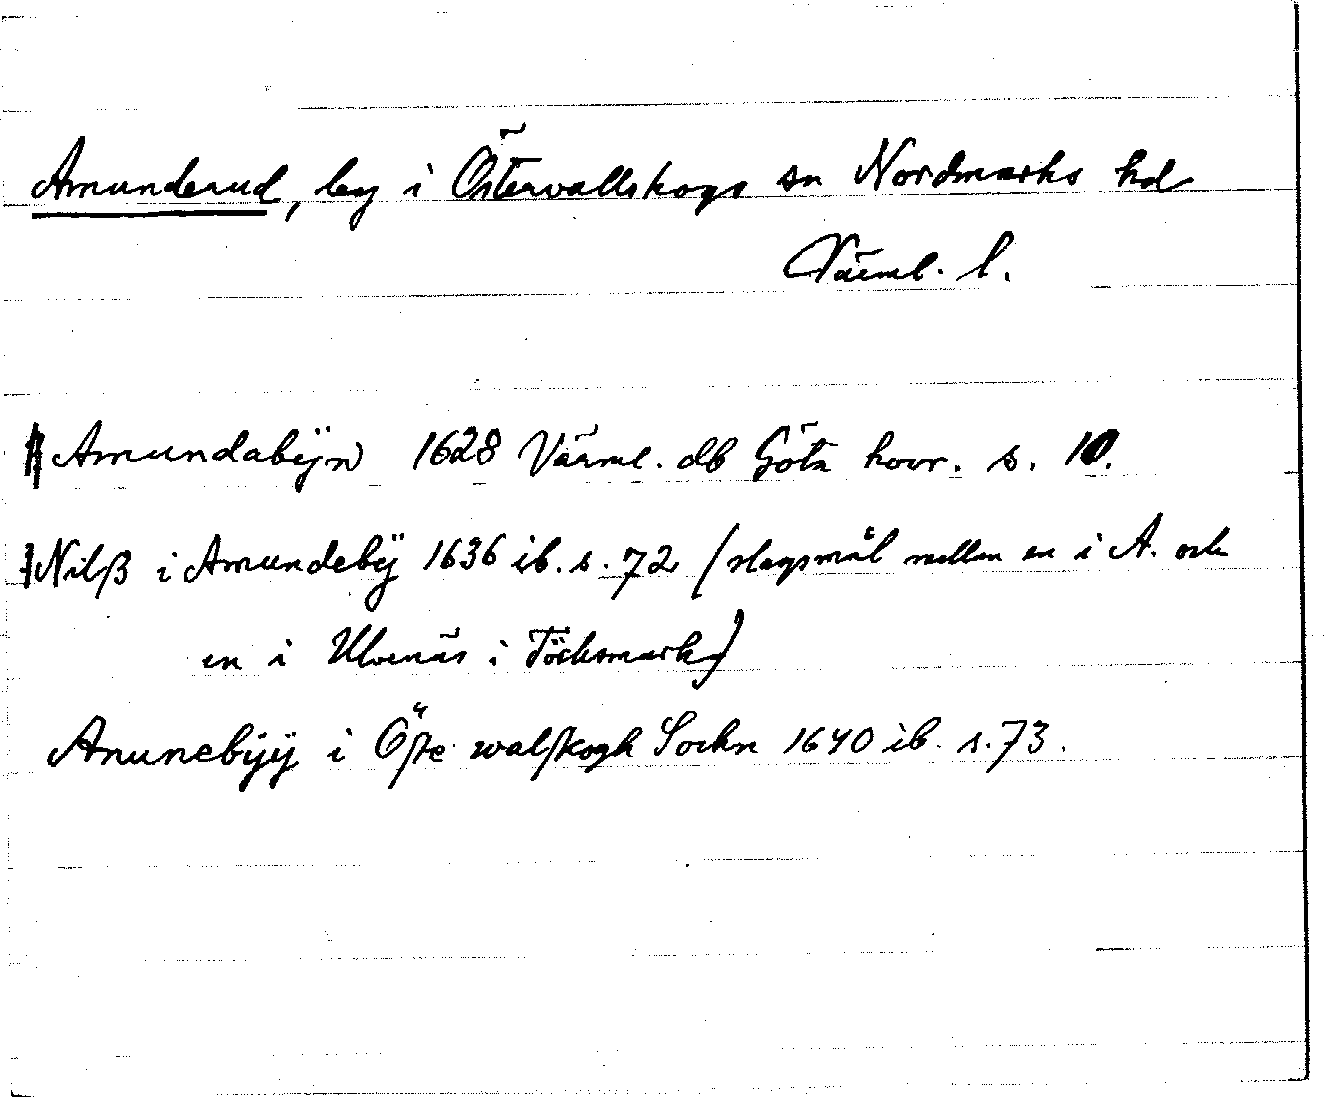 Amunderud, by i Östervallskogs sn Nordmarks hd
Värml. l.
Amundabÿn 1628 Värml. db Göta hovr. s. 10.
Nilß i Amundebÿ 1636 ib. s. 72 (slagsmål mellan en i A. och
en i Ulvenäs i Töcksmark)
Anunebÿÿ i Öste walskogh Sochn 1640 ib. s. 73.